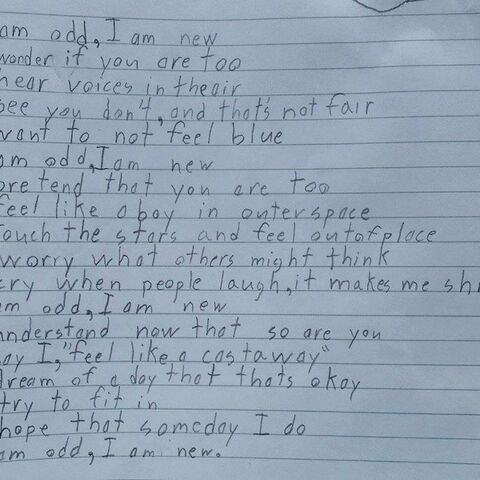 am odd, I am new
wonder if you are too
hear voices in theair
see you don't, and that's not fair
want to not feel blue
am odd, I am new
pretend that you are too
feel like a boy in outerspace
touch the stars and feel outofplace
worry what others might think
cry when people laugh, it makes me shr
am odd, I am new
understand now that so are you
say I, "feel like a castaway"
dream of a day that thats okay
try to fit in
hope that someday I do
am odd, I am new.